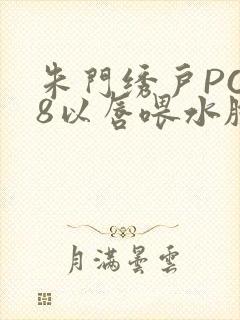 朱門绣戶PO
8以唇喂水
月满曇雲